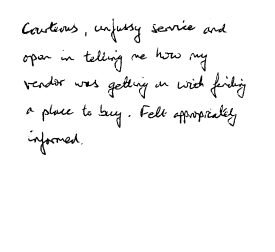 Courteous, unfussy service and
open in telling me how my
vendor was getting on with finding
a place to buy. Felt appropriately
informed.